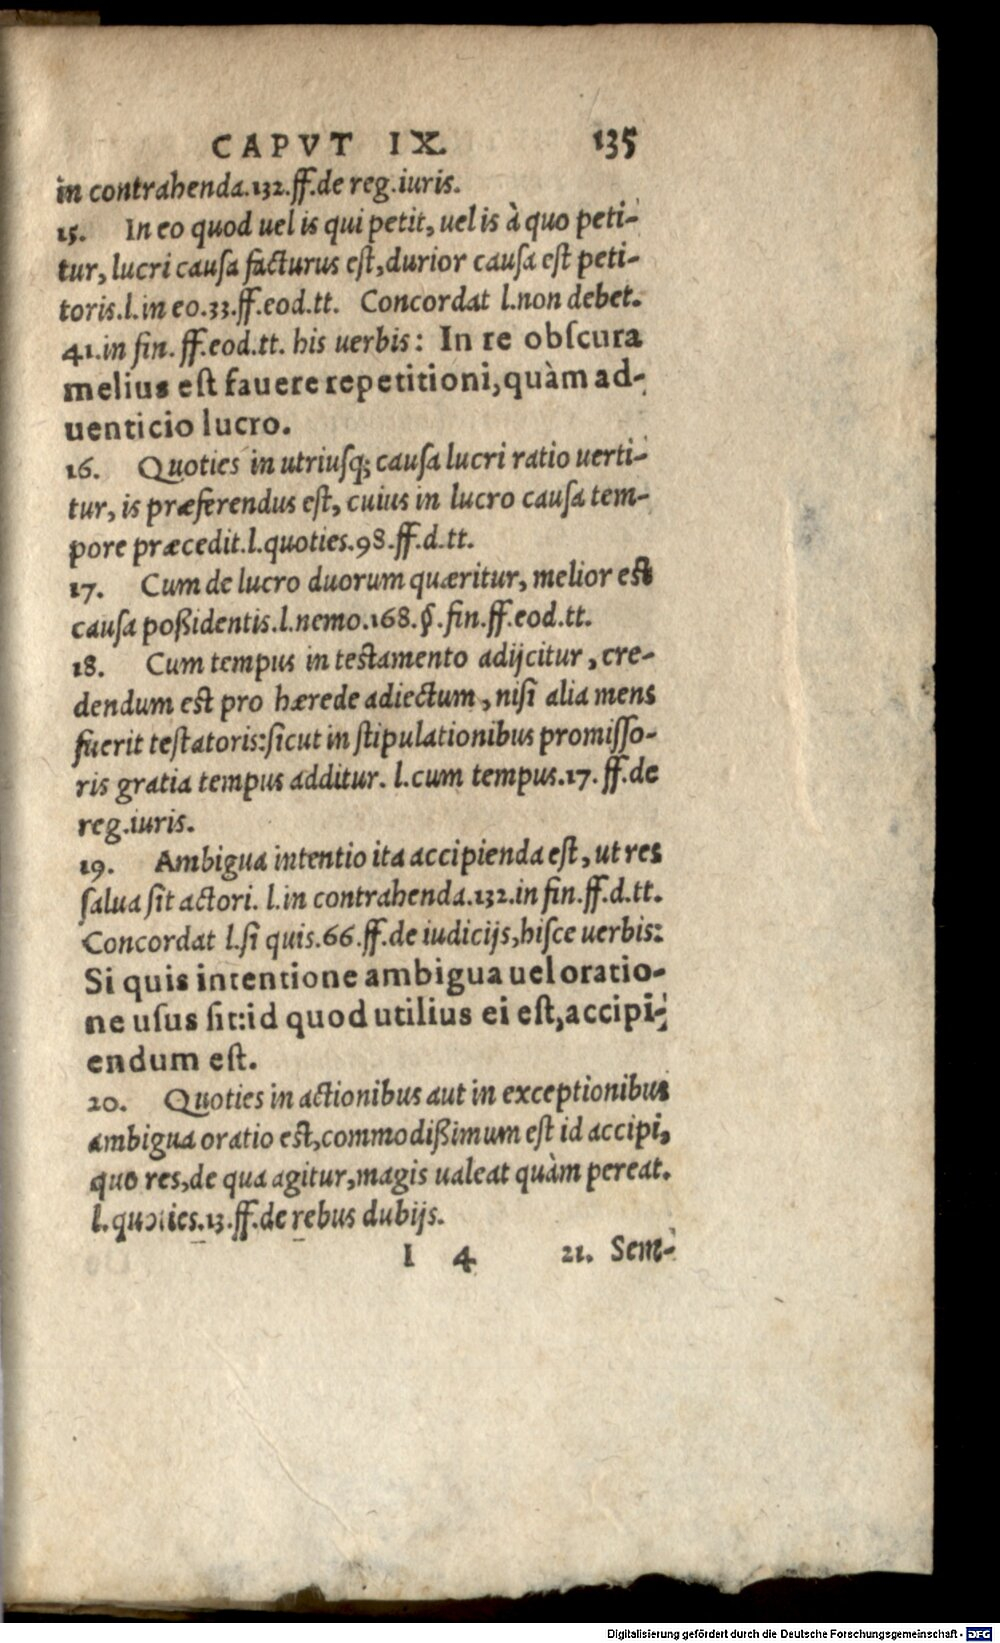 CAPVT IX. 135
in contrahenda.132.ff.de reg.iuris.
15. In eo quod uel is qui petit, uel is à quo peti-
tur, lucri cauſa facturus eſt, durior cauſa eſt peti-
toris.l.in eo.33.ff.eod.tt. Concordat l.non debet.
41.in fin. ff.eod.tt. his uerbis: In re obſcura
melius eſt fauere repetitioni, quàm ad-
uenticio lucro.
16. Quoties in utriusq; cauſa lucri ratio uerti-
tur, is præferendus eſt, cuius in lucro cauſa tem-
pore præcedit.l.quoties.98.ff.d.tt.
17. Cum de lucro duorum quæritur, melior eſt
cauſa poßidentis.l.nemo.168.§.fin.ff.eod.tt.
18. Cum tempus in teſtamento adijcitur, cre-
dendum eſt pro hærede adiectum, niſi alia mens
fuerit teſtatoris:ſicut in ſtipulationibus promiſſo-
ris gratia tempus additur. l.cum tempus.17.ff.de
reg.iuris.
19. Ambigua intentio ita accipienda eſt, ut res
ſalua ſit actori. l.in contrahenda.132.in fin.ff.d.tt.
Concordat l.ſi quis.66.ff.de iudicijs, hiſce uerbis:
Si quis intentione ambigua uel oratio-
ne uſus ſit:id quod utilius ei eſt, accipi-
endum eſt.
20. Quoties in actionibus aut in exceptionibus
ambigua oratio eſt, commodißimum eſt id accipi,
quo res, de qua agitur, magis ualeat quàm pereat.
l.quoties.13.ff.de rebus dubijs.
I 4 21. Sem-
Digitalisierung gefördert durch die Deutsche Forschungsgemeinschaft - DFG